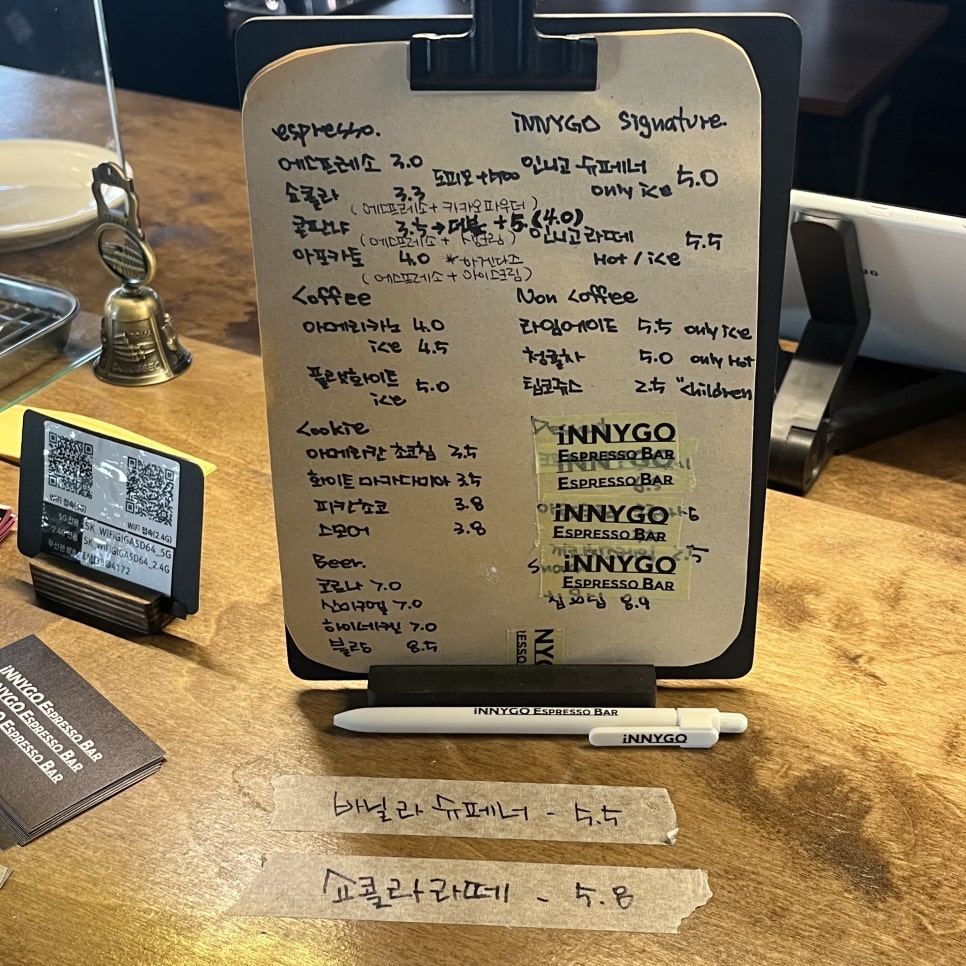 espresso.
에스프레소 3.0
도피오 +500
쇼콜라 3.3
(에스프레소 + 카카오파우더)
콘판나 3.5 → 더블 +5 (4.0)
(에스프레소 + 생크림)
아포카토 4.0 *하겐다즈
(에스프레소 + 아이스크림)
iNNYGO Signature.
인니고 슈페너 5.0
only ice
인니고 라떼 5.5
Hot / ice
Coffee
아메리카노 4.0
ice 4.5
플랫화이트 5.0
ice
Non Coffee
라임에이드 5.5 only ice
청귤차 5.0 only Hot
팁코쥬스 2.5 "children
Cookie
아메리칸 초코칩 3.5
화이트 마카다미아 3.5
피칸쵸코 3.8
스모어 3.8
Beer.
코로나 7.0
산미구엘 7.0
하이네켄 7.0
블랑 8.5
iNNYGO
ESPRESSO BAR
iNNYGO
ESPRESSO BAR
iNNYGO
ESPRESSO BAR
iNNYGO
ESPRESSO BAR
8.9
WiFi 접속(5G)
WiFi 접속(2.4G)
SK_WiFiGIGA5D64_5G
SK_WiFiGIGA5D64_2.4G
iNNYGO ESPRESSO BAR
iNNYGO ESPRESSO BAR
ESPRESSO BAR
iNNYGO ESPRESSO BAR
iNNYGO
바닐라 슈페너 - 5.5
쇼콜라 라떼 - 5.8